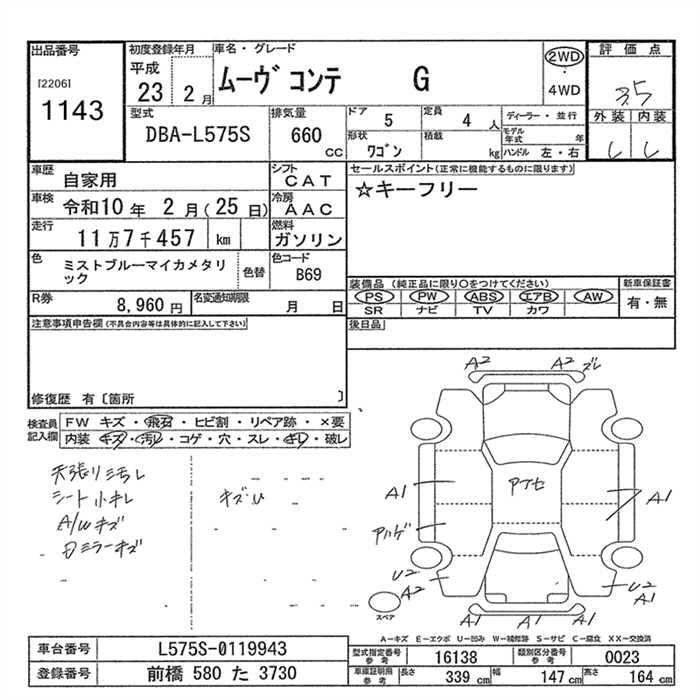 出品番号 初度登録年月 車名・グレード 評価点
[2206] 平成 ムーヴ コンテ G 2WD ・ 4WD 3.5
1143 23 2 月 外装 内装
型式 排気量 ドア 5 定員 4 人 ディーラー・並行
DBA-L575S 660 CC 形状 ワゴン 積載 kg モデル年式 年 ハンドル 左・右
車歴 自家用 シフト CAT セールスポイント(正常に機能するものに限ります)
車検 令和10 年 2 月(25 日) 冷房 AAC ☆キーフリー
走行 11 万 7 千 457 km 燃料 ガソリン
色 ミストブルーマイカメタリック 色替 色コード B69
装備品(純正品に限り○をつけてください) 新車保証書
R券 8,960 円 名変通知期限 月 日 PS PW ABS エアB AW 有・無
SR ナビ TV カワ
注意事項申告欄(不具合内容等は具体的に記入して下さい) 後日品
修復歴 有〔箇所 〕
検査員記入欄 FW キズ・飛石・ヒビ割・リペア跡・×要
内装 キズ・汚レ・コゲ・穴・スレ・キレ・破レ
A2 A2 ズレ
天張リ汚レ
シート小キレ キズ・U
A/Wキズ
ミラーキズ
アケセ
A1 A1
アハゲ
U2 A2 U2 A1
A1 A1 A1
スペア
A−キズ E−エクボ U−凹み W−補修跡 S−サビ C−腐食 XX−交換済
車台番号 L575S-0119943 型式指定番号 参考 16138 類別区分番号 参考 0023
登録番号 前橋 580 た 3730 車庫証明用 参考 長さ 339 cm 幅 147 cm 高さ 164 cm